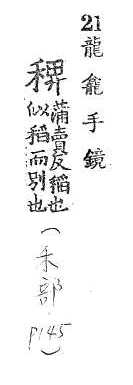 21龍龕手鏡
稗蒲賣反稻也
似稻而別也
(禾部
P145)